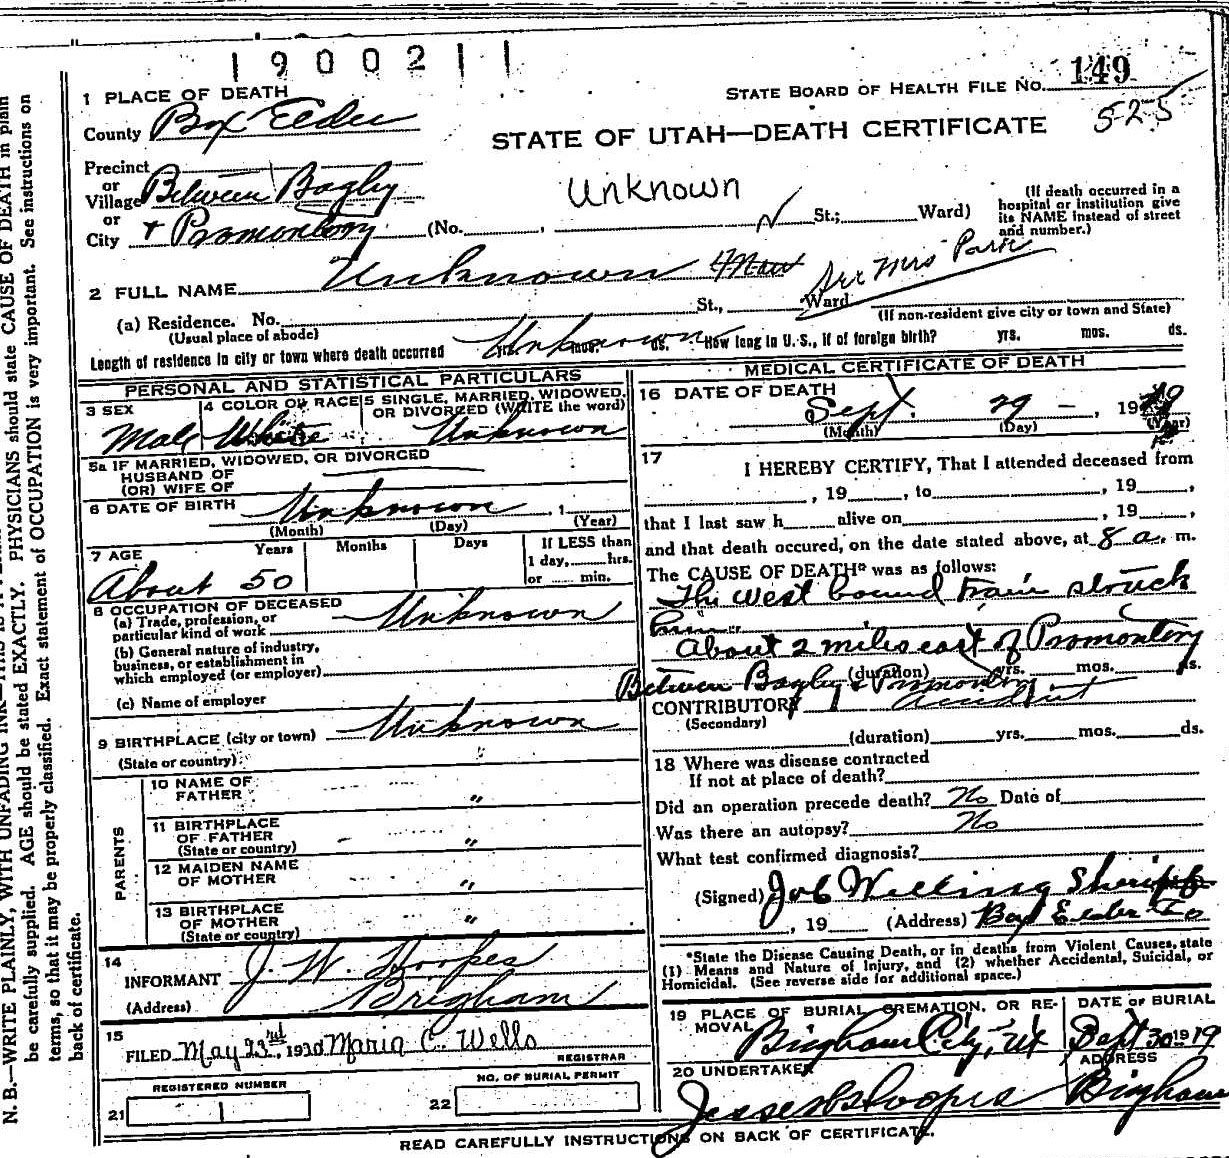 1900211
1 PLACE OF DEATH
STATE BOARD OF HEALTH FILE NO. 149
County Box Elder
STATE OF UTAH—DEATH CERTIFICATE 525
Precinct
or
Village Between Bagley
or
City + Promontory
Unknown
(No. , St.; Ward)
(If death occurred in a
hospital or institution give
its NAME instead of street
and number.)
2 FULL NAME Unknown Man
See Mrs Park
(a) Residence. No. St., Ward
(Usual place of abode)
(If non-resident give city or town and State)
Length of residence in city or town where death occurred yrs. mos. ds. Unknown How long in U. S., if of foreign birth? yrs. mos. ds.
PERSONAL AND STATISTICAL PARTICULARS
3 SEX
Male
4 COLOR OR RACE
White
5 SINGLE, MARRIED, WIDOWED,
OR DIVORCED (WRITE the word)
Unknown
5a IF MARRIED, WIDOWED, OR DIVORCED
HUSBAND OF
(OR) WIFE OF
6 DATE OF BIRTH Unknown , 1
(Month) (Day) (Year)
7 AGE Years Months Days
About 50
If LESS than
1 day, hrs.
or min.
8 OCCUPATION OF DECEASED
(a) Trade, profession, or
particular kind of work Unknown
(b) General nature of industry,
business, or establishment in
which employed (or employer)
(c) Name of employer
9 BIRTHPLACE (city or town) Unknown
(State or country) "
PARENTS
10 NAME OF
FATHER "
11 BIRTHPLACE
OF FATHER "
(State or country)
12 MAIDEN NAME
OF MOTHER "
13 BIRTHPLACE
OF MOTHER "
(State or country)
14
INFORMANT J. W. Hoopes
(Address) Brigham
15
FILED May 23rd, 1920 Maria C. Wells
REGISTRAR
REGISTERED NUMBER
21 1
NO. OF BURIAL PERMIT
22
MEDICAL CERTIFICATE OF DEATH
16 DATE OF DEATH
Sept. 29 - , 1919
(Month) (Day) (Year)
17
I HEREBY CERTIFY, That I attended deceased from
, 19 , to , 19 ,
that I last saw h alive on , 19 ,
and that death occured, on the date stated above, at 8 a. m.
The CAUSE OF DEATH* was as follows:
The west bound train struck
him
About 2 miles east of Promontory
(duration) yrs. mos. ds.
Between Bagley & Promontory
CONTRIBUTORY accident
(Secondary)
(duration) yrs. mos. ds.
18 Where was disease contracted
If not at place of death?
Did an operation precede death? No Date of
Was there an autopsy? No
What test confirmed diagnosis?
(Signed) Job Welling Sheriff
, 19 (Address) Box Elder Co
*State the Disease Causing Death, or in deaths from Violent Causes, state
(1) Means and Nature of Injury, and (2) whether Accidental, Suicidal, or
Homicidal. (See reverse side for additional space.)
19 PLACE OF BURIAL, CREMATION, OR RE-
MOVAL
Brigham City, Ut
DATE OF BURIAL
Sept 30 1919
20 UNDERTAKER
Jesse W Hoopes
ADDRESS
Brigham
READ CAREFULLY INSTRUCTIONS ON BACK OF CERTIFICATE.
N. B.—WRITE PLAINLY, WITH UNFADING INK—THIS IS A
be carefully supplied. AGE should be stated EXACTLY. PHYSICIANS should state CAUSE OF DEATH in plain
terms, so that it may be properly classified. Exact statement of OCCUPATION is very important. See instructions on
back of certificate.